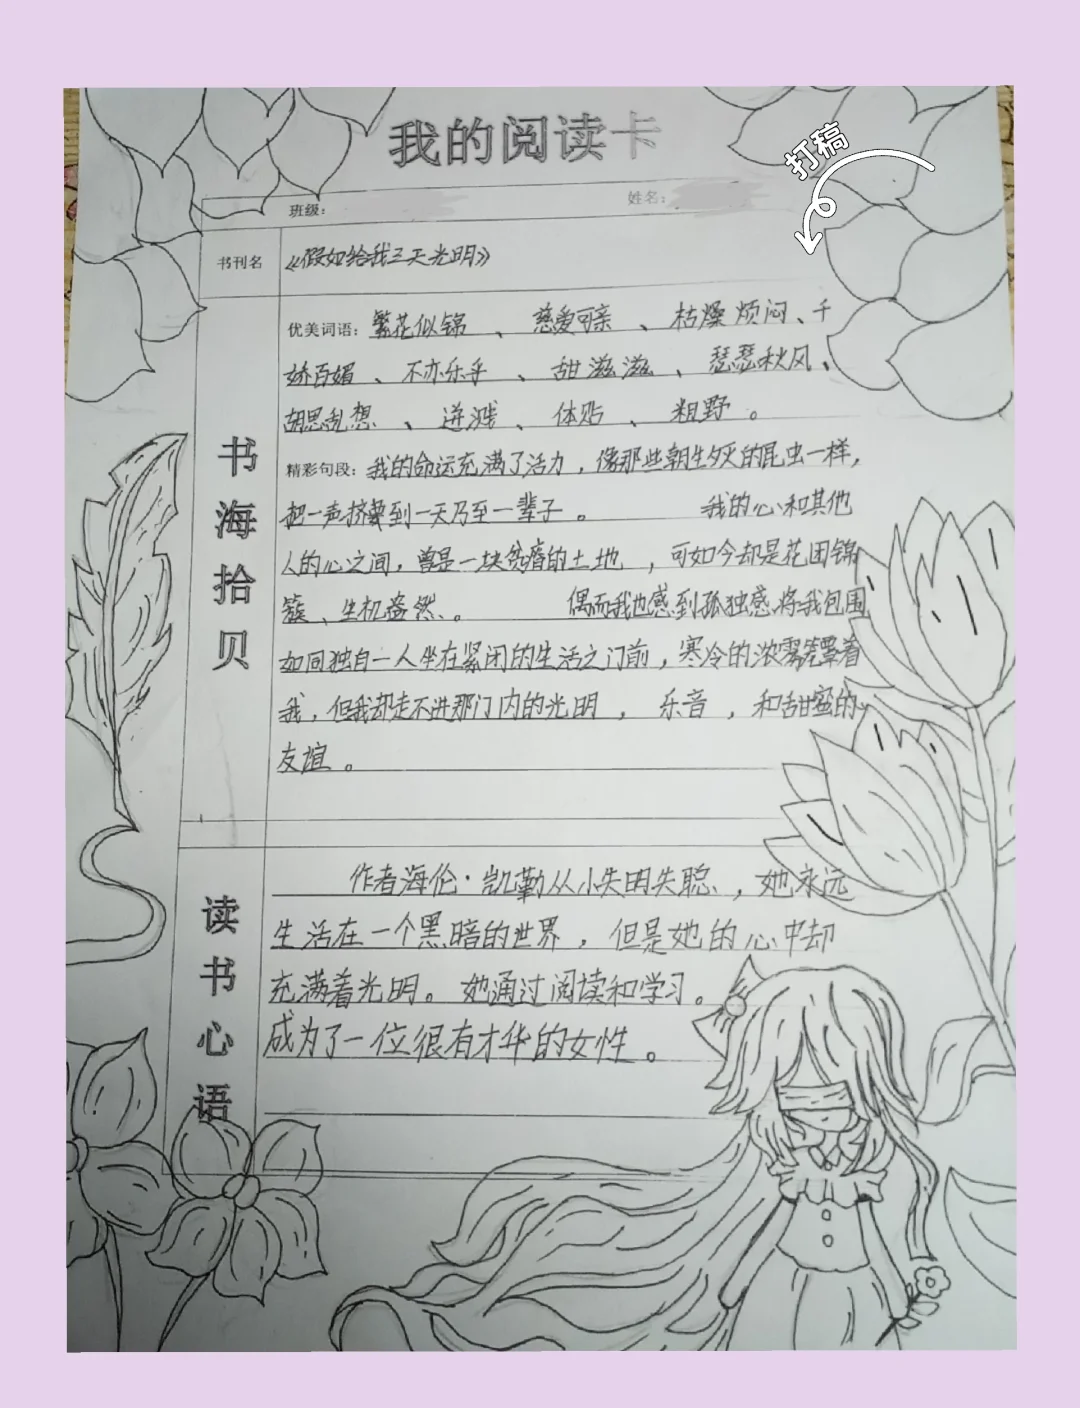 我的阅读卡
打稿
班级: 姓名:
书刊名 《假如给我三天光明》
书海拾贝
优美词语: 繁花似锦 、 慈爱可亲 、 枯燥烦闷、千
娇百媚 、 不亦乐乎 、 甜滋滋 、 瑟瑟秋风、
胡思乱想 、 迸溅 、 体贴 、 粗野 。
精彩句段: 我的命运充满了活力,像那些朝生夕灭的昆虫一样,
把一声挤要到一天乃至一辈子 。 我的心和其他
人的心之间,曾是一块贫瘠的土地 ,可如今却是花团锦
簇、生机盎然、。 偶而我也感到孤独感将我包围
如同独自一人坐在紧闭的生活之门前,寒冷的浓雾笼罩着
我,但我却走不进那门内的光明 , 乐音 ,和甜蜜的
友谊 。
读书心语
作者海伦·凯勒从小失明失聪、,她永远
生活在一个黑暗的世界 ,但是她的心中却
充满着光明。她通过阅读和学习。
成为了一位很有才华的女性 。